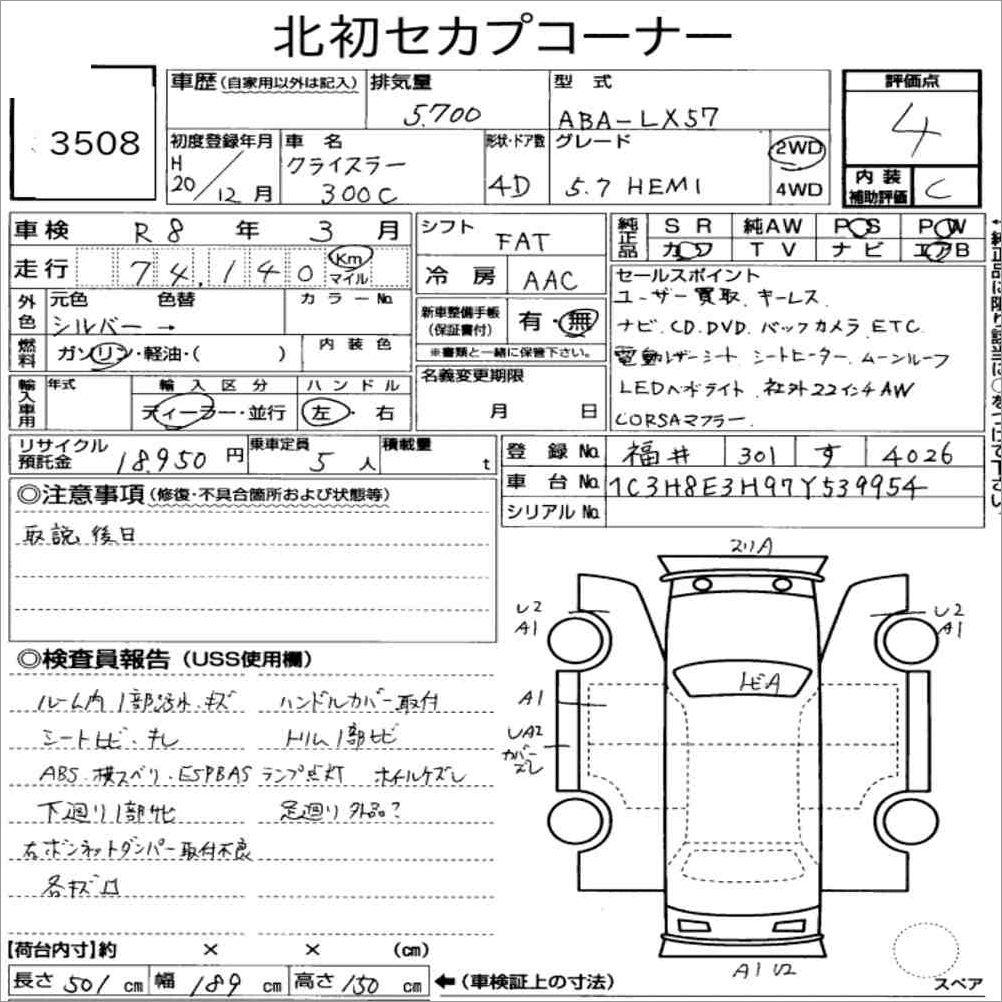 北初セカプコーナー
3508
車歴(自家用以外は記入) 排気量 5.700 型式 ABA-LX57
初度登録年月 H 20/12月 車名 クライスラー 300C 形状・ドア数 4D グレード 5.7 HEMI 2WD 4WD
評価点 4
内装補助評価 C
車検 R8年 3月
走行 74,140 Km マイル
外色 元色 シルバー → 色替 カラーNo.
燃料 ガソリン・軽油・( ) 内装色
輸入車用 年式 輸入区分 ディーラー・並行 ハンドル 左・右
シフト FAT
冷房 AAC
新車整備手帳(保証書付) 有・無
※書類と一緒に保管下さい。
名義変更期限 月 日
純正品 SR 純AW PS PW
カワ TV ナビ エアB
セールスポイント
ユーザー買取、キーレス、
ナビ.CD.DVD. バックカメラ ETC
電動レザーシート シートヒーター. ムーンルーフ
LEDヘッドライト. 社外22インチAW
CORSAマフラー.
リサイクル預託金 18.950円 乗車定員 5人 積載量 t
登録No. 福井 301 す 4026
車台No. 1C3H8E3H97Y539954
シリアルNo.
◎注意事項(修復・不具合箇所および状態等)
取説後日
◎検査員報告(USS使用欄)
ルーム内1部汚れ.キズ ハンドルカバー取付
シートヒビ.キレ トリム1部ヒビ
ABS.横スベリ.ESPBAS ランプ点灯
下廻り1部サビ 足廻り外品?
右ボンネットダンパー取付不良
各キズ凹
スリA
U2
A1
U2
A1
トビA
A1
UA2
カバーズレ
A1 U2
スペア
【荷台内寸】約 × × (cm)
長さ 501 cm 幅 189 cm 高さ 150 cm ←(車検証上の寸法)